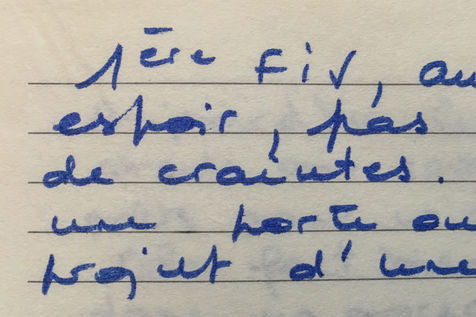 1ère fiv, au
espoir, pas
de craintes.
une porte ou
projet d'une